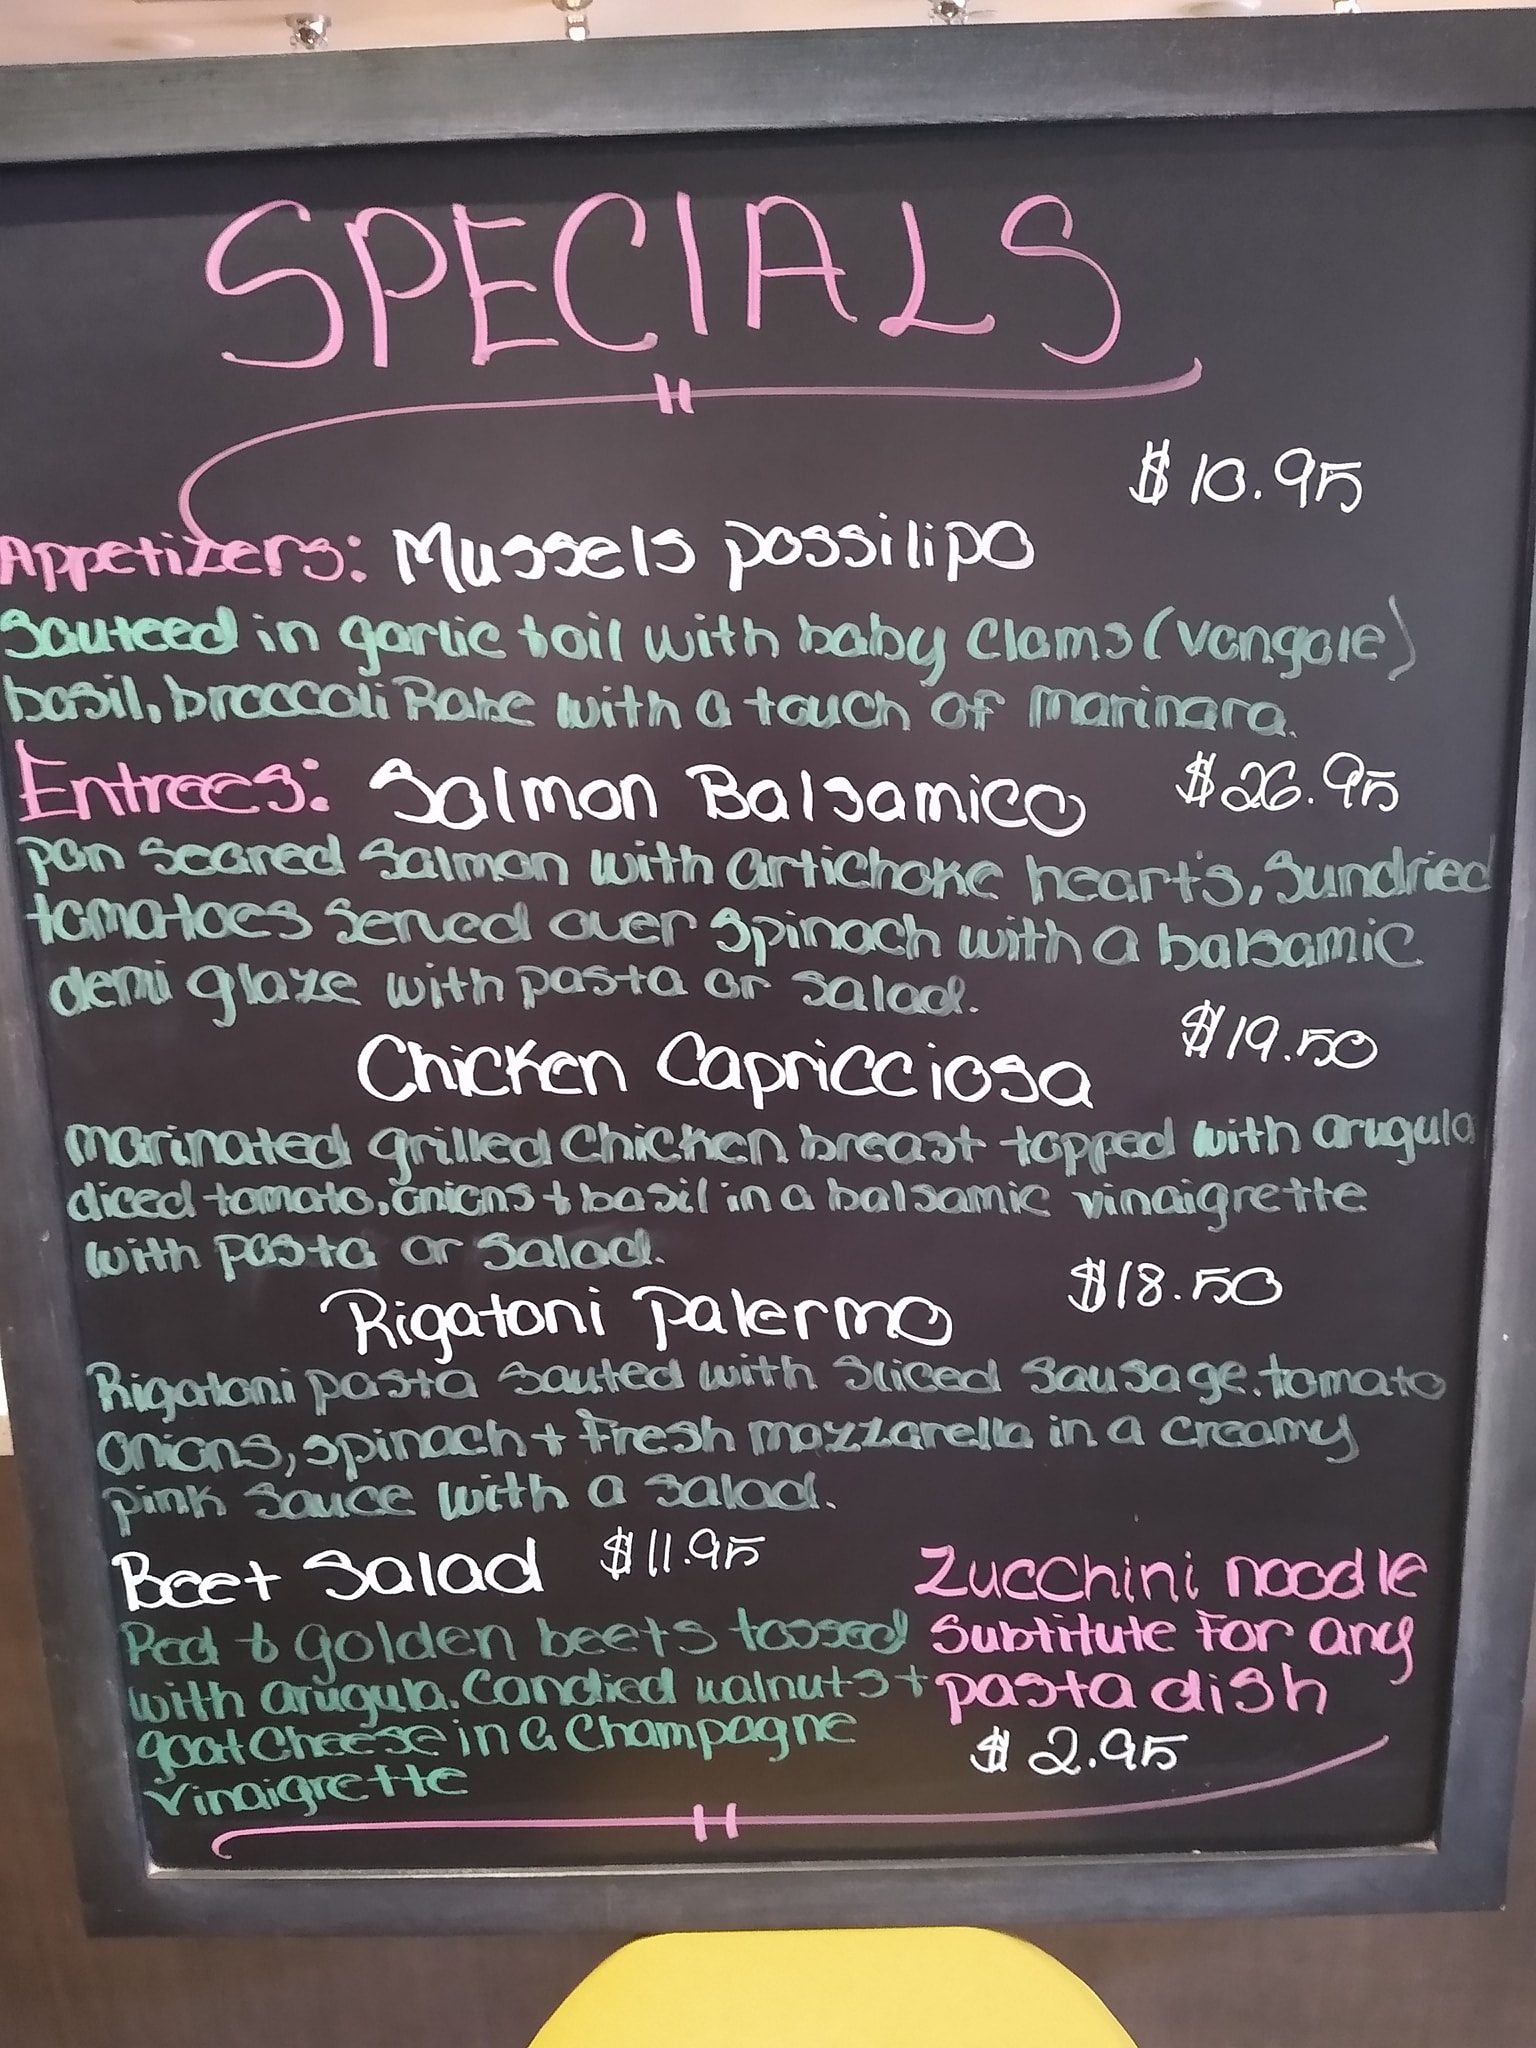 SPECIALS
$10.95
Appetizers: Mussels possilipo
Sauteed in garlic + oil with baby clams (vongole)
basil, broccoli Rabe with a touch of marinara.
Entrees: Salmon Balsamico $26.95
pan seared salmon with artichoke hearts, sundried
tomatoes served over spinach with a balsamic
demi glaze with pasta or salad.
Chicken Capricciosa $19.50
marinated grilled chicken breast topped with arugula
diced tomato, onions + basil in a balsamic vinaigrette
with pasta or salad.
Rigatoni Palermo $18.50
Rigatoni pasta sauted with sliced sausage, tomato
onions, spinach + fresh mozzarella in a creamy
pink sauce with a salad.
Beet Salad $11.95
Red & golden beets tossed
with arugula, candied walnuts +
goat cheese in a Champagne
vinaigrette
Zucchini noodle
subtitute for any
pasta dish
$2.95